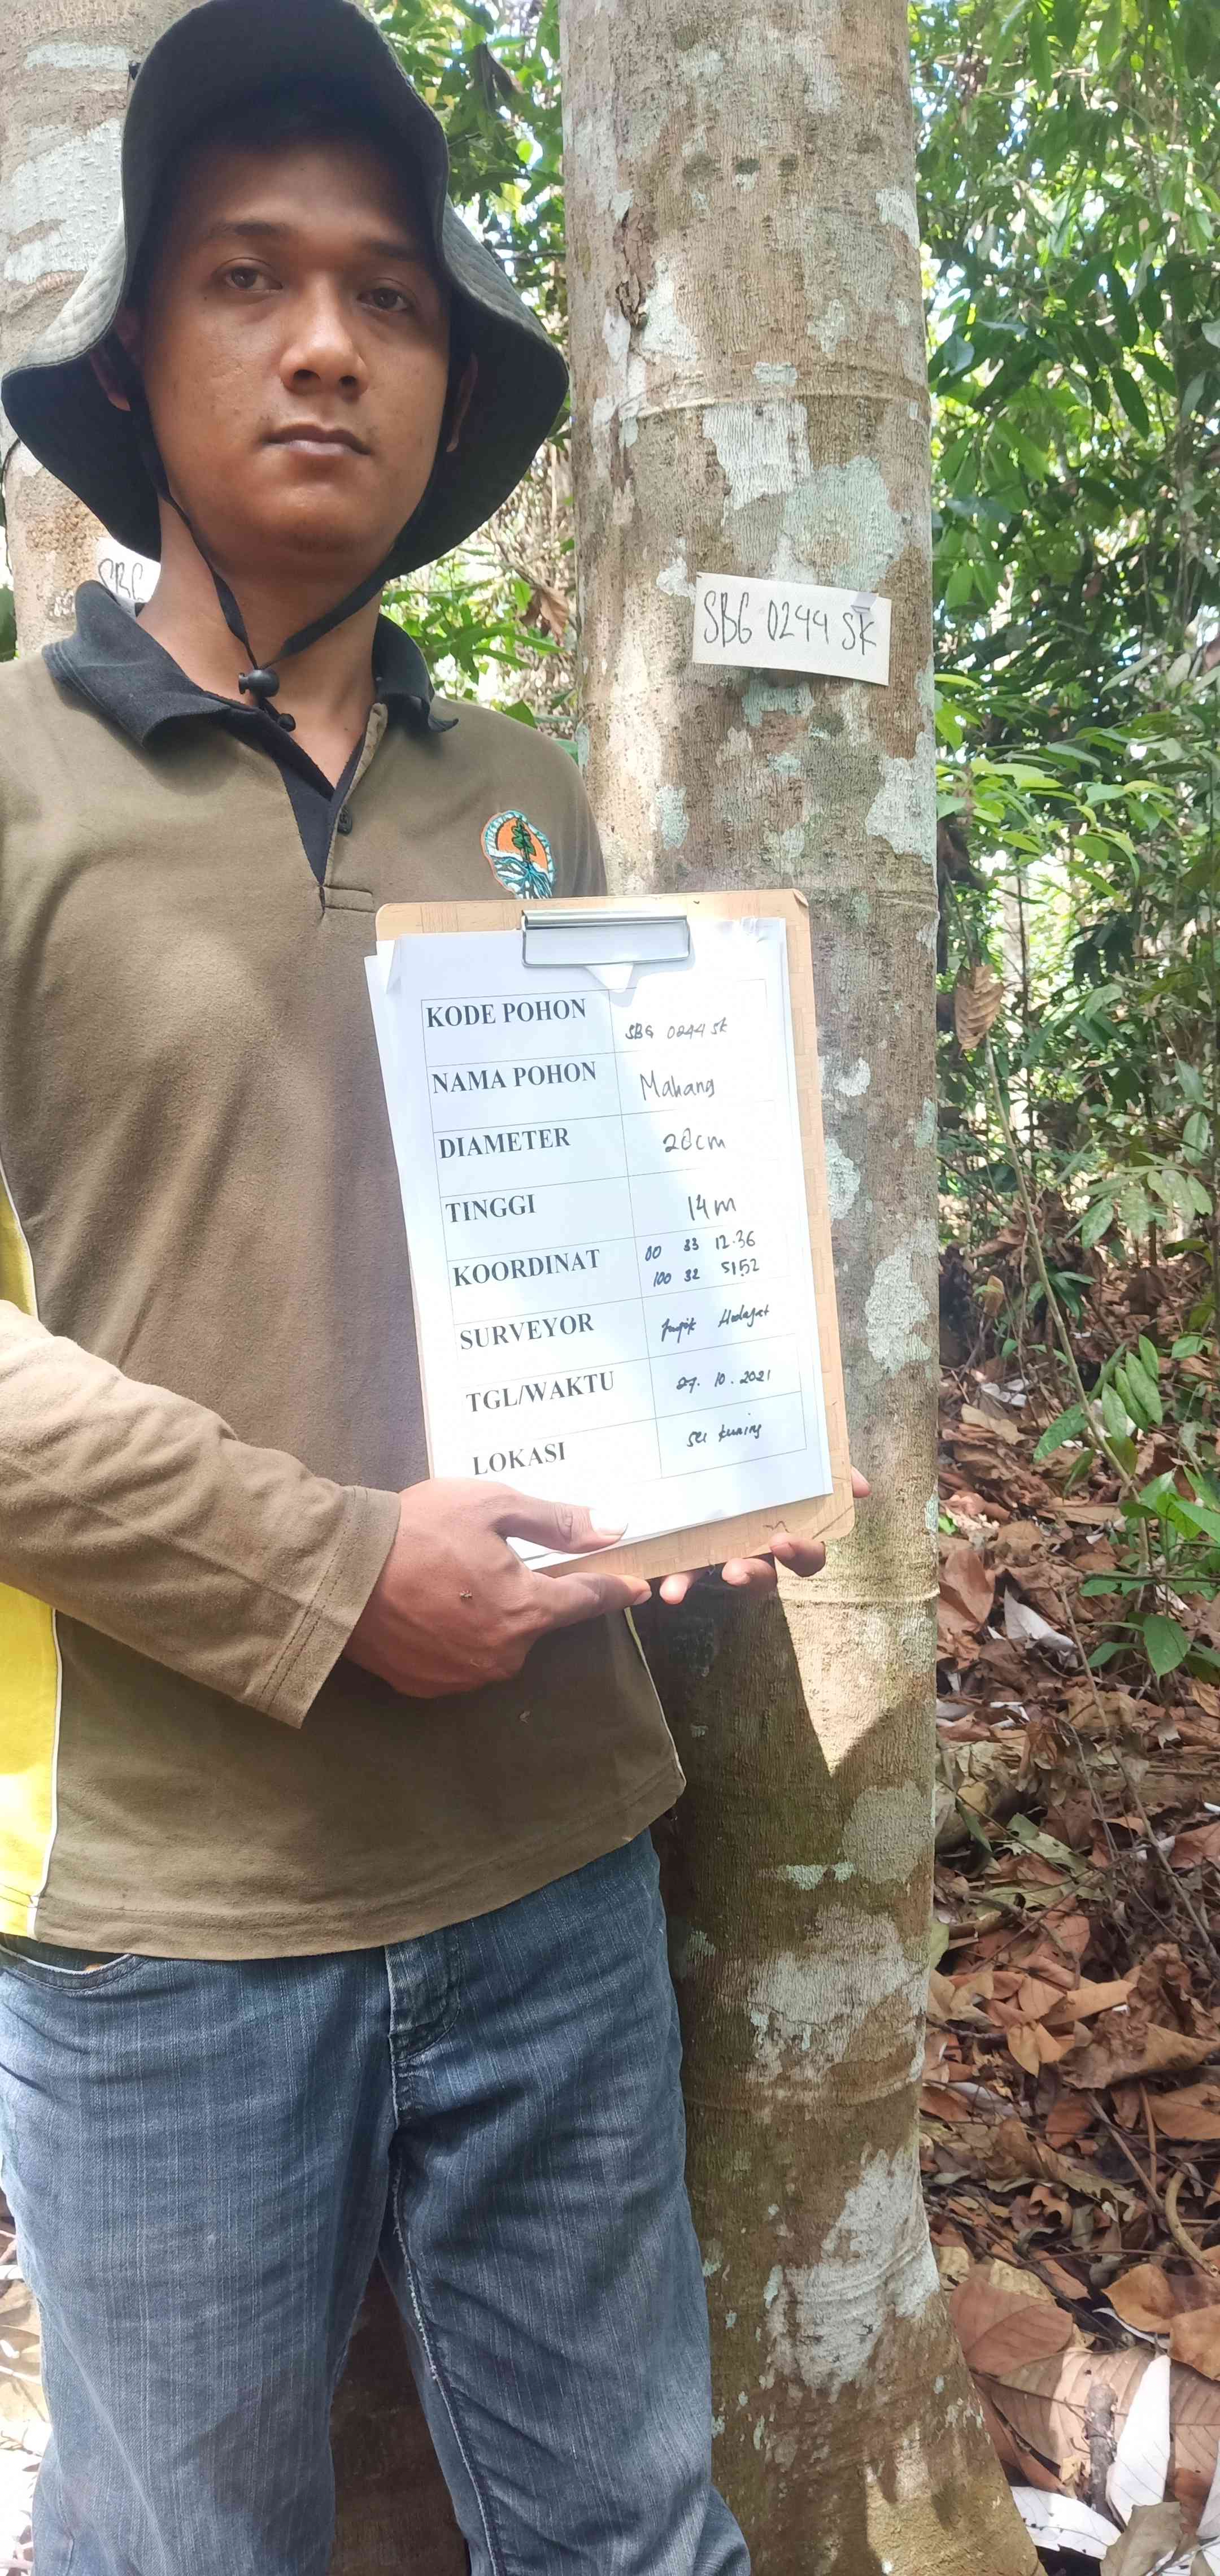 SBG
SBG 0244 SK
KODE POHON SBG 0244 SK
NAMA POHON Mahang
DIAMETER 28cm
TINGGI 14m
KOORDINAT 00 33 12.36
100 32 51.52
SURVEYOR Hidayat
TGL/WAKTU 27. 10. 2021
LOKASI sei kuning